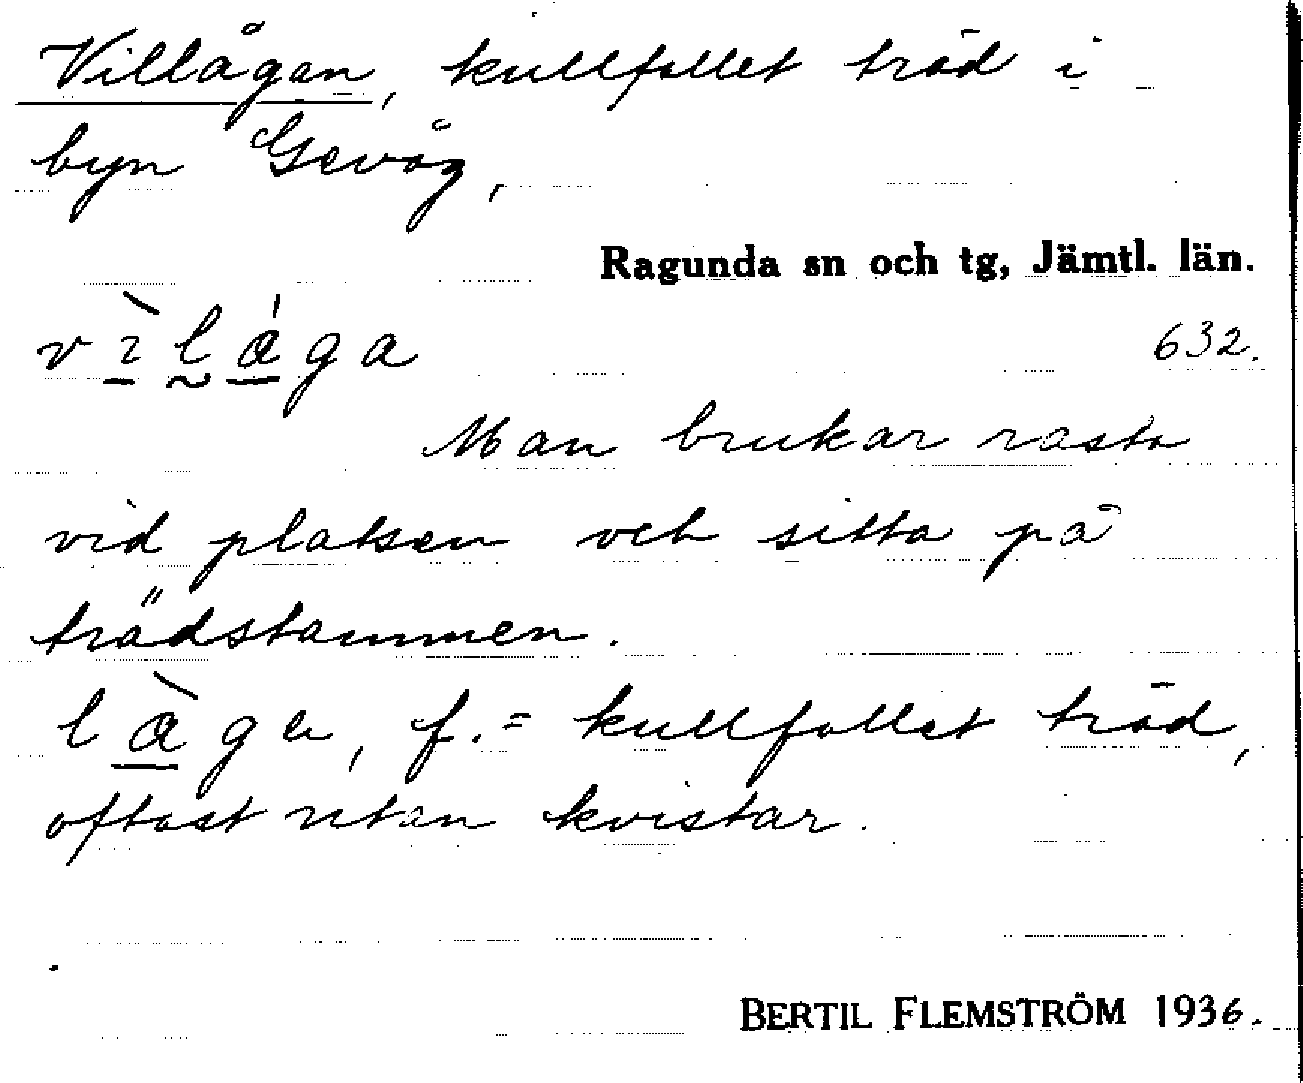 Villågan, kullfallet träd i
byn Gevåg,
Ragunda sn och tg, Jämtl. län.
vìlága
632.
Man brukar rasta
vid platsen och sitta på
trädstammen.
làga, f. = kullfallet träd,
oftast utan kvistar.
BERTIL FLEMSTRÖM 1936.